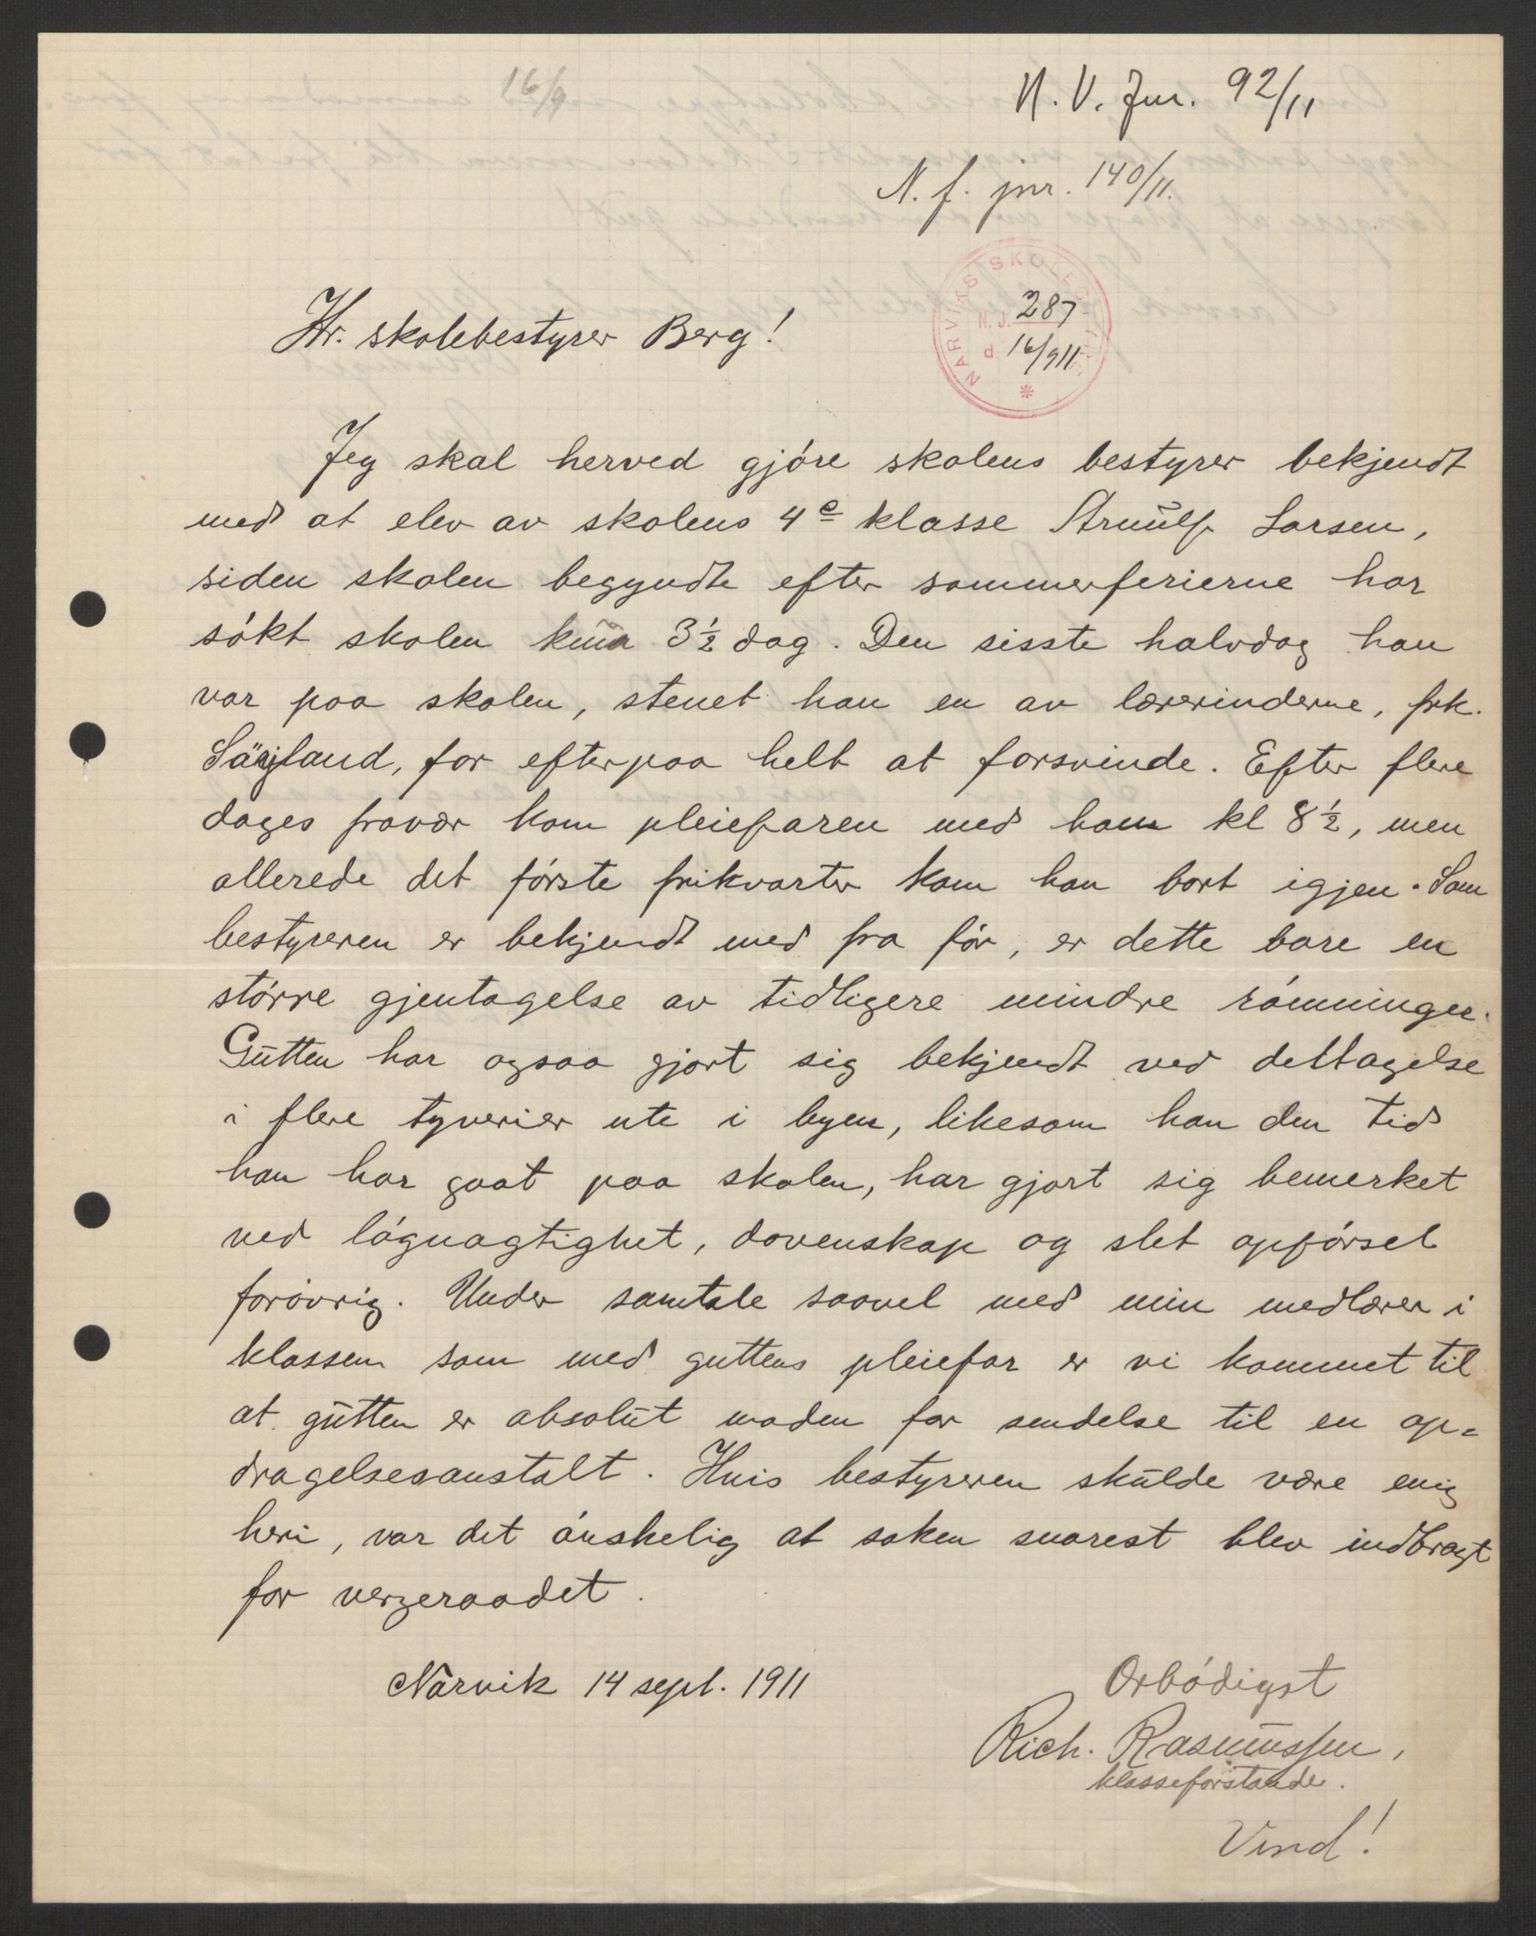 16/9
N. V. Jnr. 92/11
N. f. jnr. 140/11.
NARVIKS SKOLE
N. J. 287
d. 16/9 11
Hr. skolebestyrer Berg!
Jeg skal herved gjóre skolens bestyrer bekjendt
med at elev av skolens 4e klasse Arnulf Larsen,
siden skolen begyndte efter sommerferierne har
sókt skolen kun 3½ dag. Den sisste halvdag han
var paa skolen, stenet han en av lærerinderne, frk.
for efterpaa helt at forsvinde. Efter flere
dages fravær kom pleiefaren med ham kl 8½, men
allerede det fórste frikvarter kom han bort igjen. Som
bestyreren er bekjendt med fra fór, er dette bare en
stórre gjentagelse av tidligere mindre rómninger.
Gutten har ogsaa gjort sig bekjendt ved deltagelse
i flere tyverier ute i byen, likesom han den tid
han har gaat paa skolen, har gjort sig bemerket
ved lógnagtighet, dovenskap og slet opfórsel
foróvrig. Under samtale saavel med min medlærer i
klassen som med guttens pleiefar er vi kommet til
at gutten er absolut moden for sendelse til en op-
dragelsesanstalt. Hvis bestyreren skulde være enig
heri, var det ónskelig at saken snarest blev indbragt
for vergeraadet.
Narvik 14 sept. 1911
Ærbódigst
Rich. Rasmussen,
klasseforstander.
Vend!